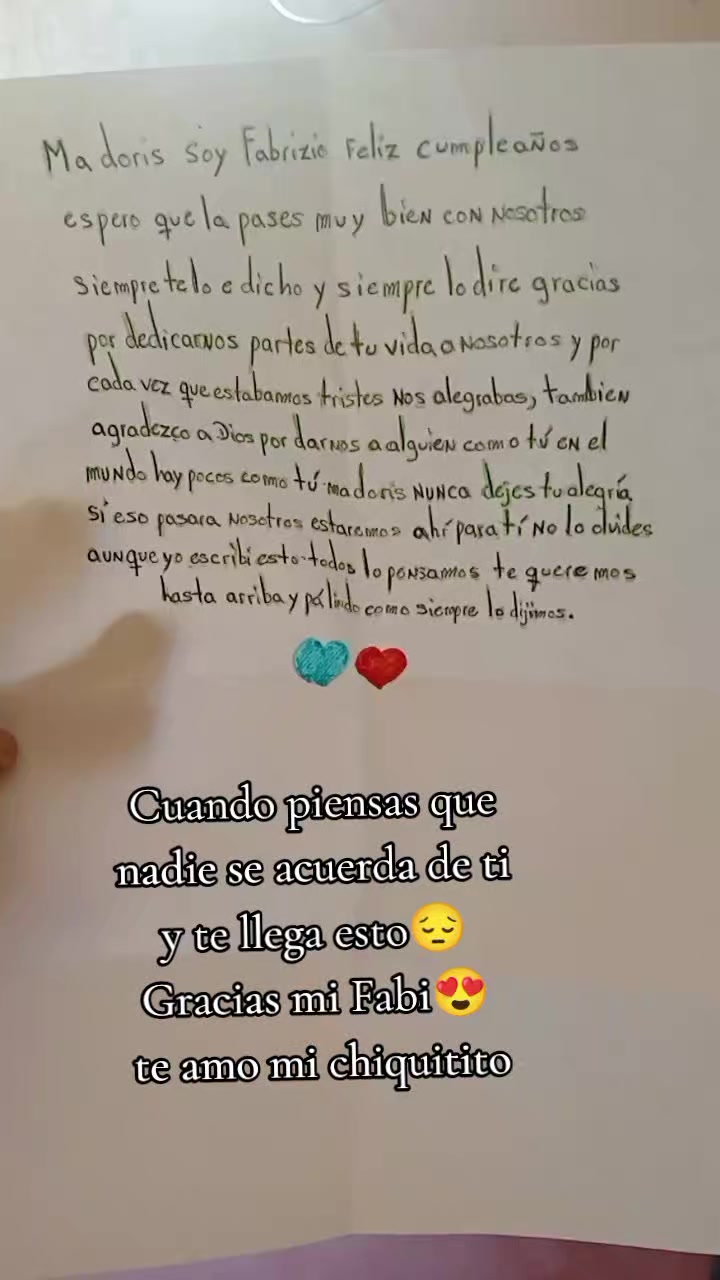 Ma doris soy Fabrizio Feliz cumpleaños
espero que la pases muy bien con nosotros
siempre telo e dicho y siempre lo dire gracias
por dedicarnos partes de tu vida a nosotros y por
cada vez que estabamos tristes nos alegrabas, tambien
agradezco a Dios por darnos a alguien como tú en el
mundo hay pocos como tú madoris nunca dejes tu alegría
si eso pasara nosotros estaremos ahí para tí no lo olvides
aunque yo escribi esto todos lo pensamos te queremos
hasta arriba y pálindo como siempre lo dijimos.
Cuando piensas que
nadie se acuerda de ti
y te llega esto😔
Gracias mi Fabi😍
te amo mi chiquitito